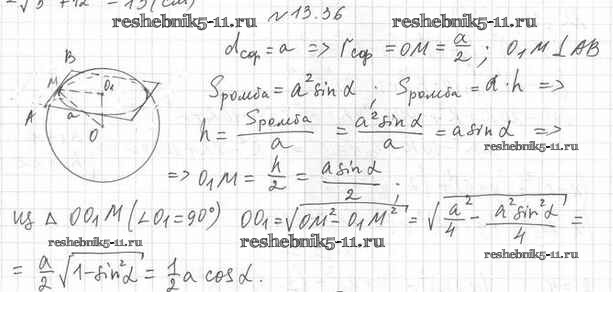 -√5² + 12² = 13 (см)
reshebnik5-11.ru
№13.36
reshebnik5-11.ru
d сф = a => r сф = OM = a/2 ; O₁M ⊥ AB
B
M
O₁
A
a
O
S ромба = a² sin α ; S ромба = a · h =>
h = S ромба/a = a² sin α/a = a sin α =>
reshebnik5-11.ru
=> O₁M = h/2 = a sin α/2 ;
из △ OO₁M (∠O₁ = 90°) OO₁ = √(OM² - O₁M²) = √(a²/4 - a² sin² α/4) =
reshebnik5-11.ru
reshebnik5-11.ru
= a/2 √(1 - sin² α) = 1/2 a cos α.
reshebnik5-11.ru